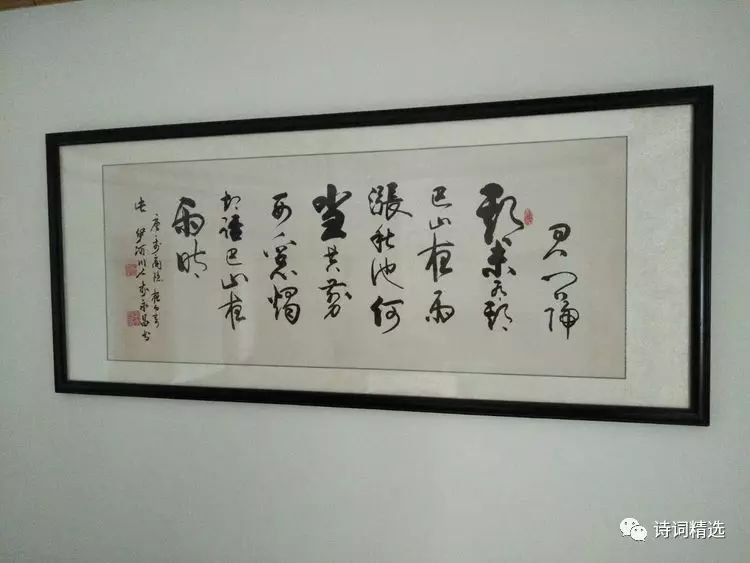 君问归
期未有期
巴山夜雨
漲秋池何
当共剪
西窗燭
却話巴山夜
雨时
唐李商隐夜雨寄
北 伊河川人李永昌书
诗词精选